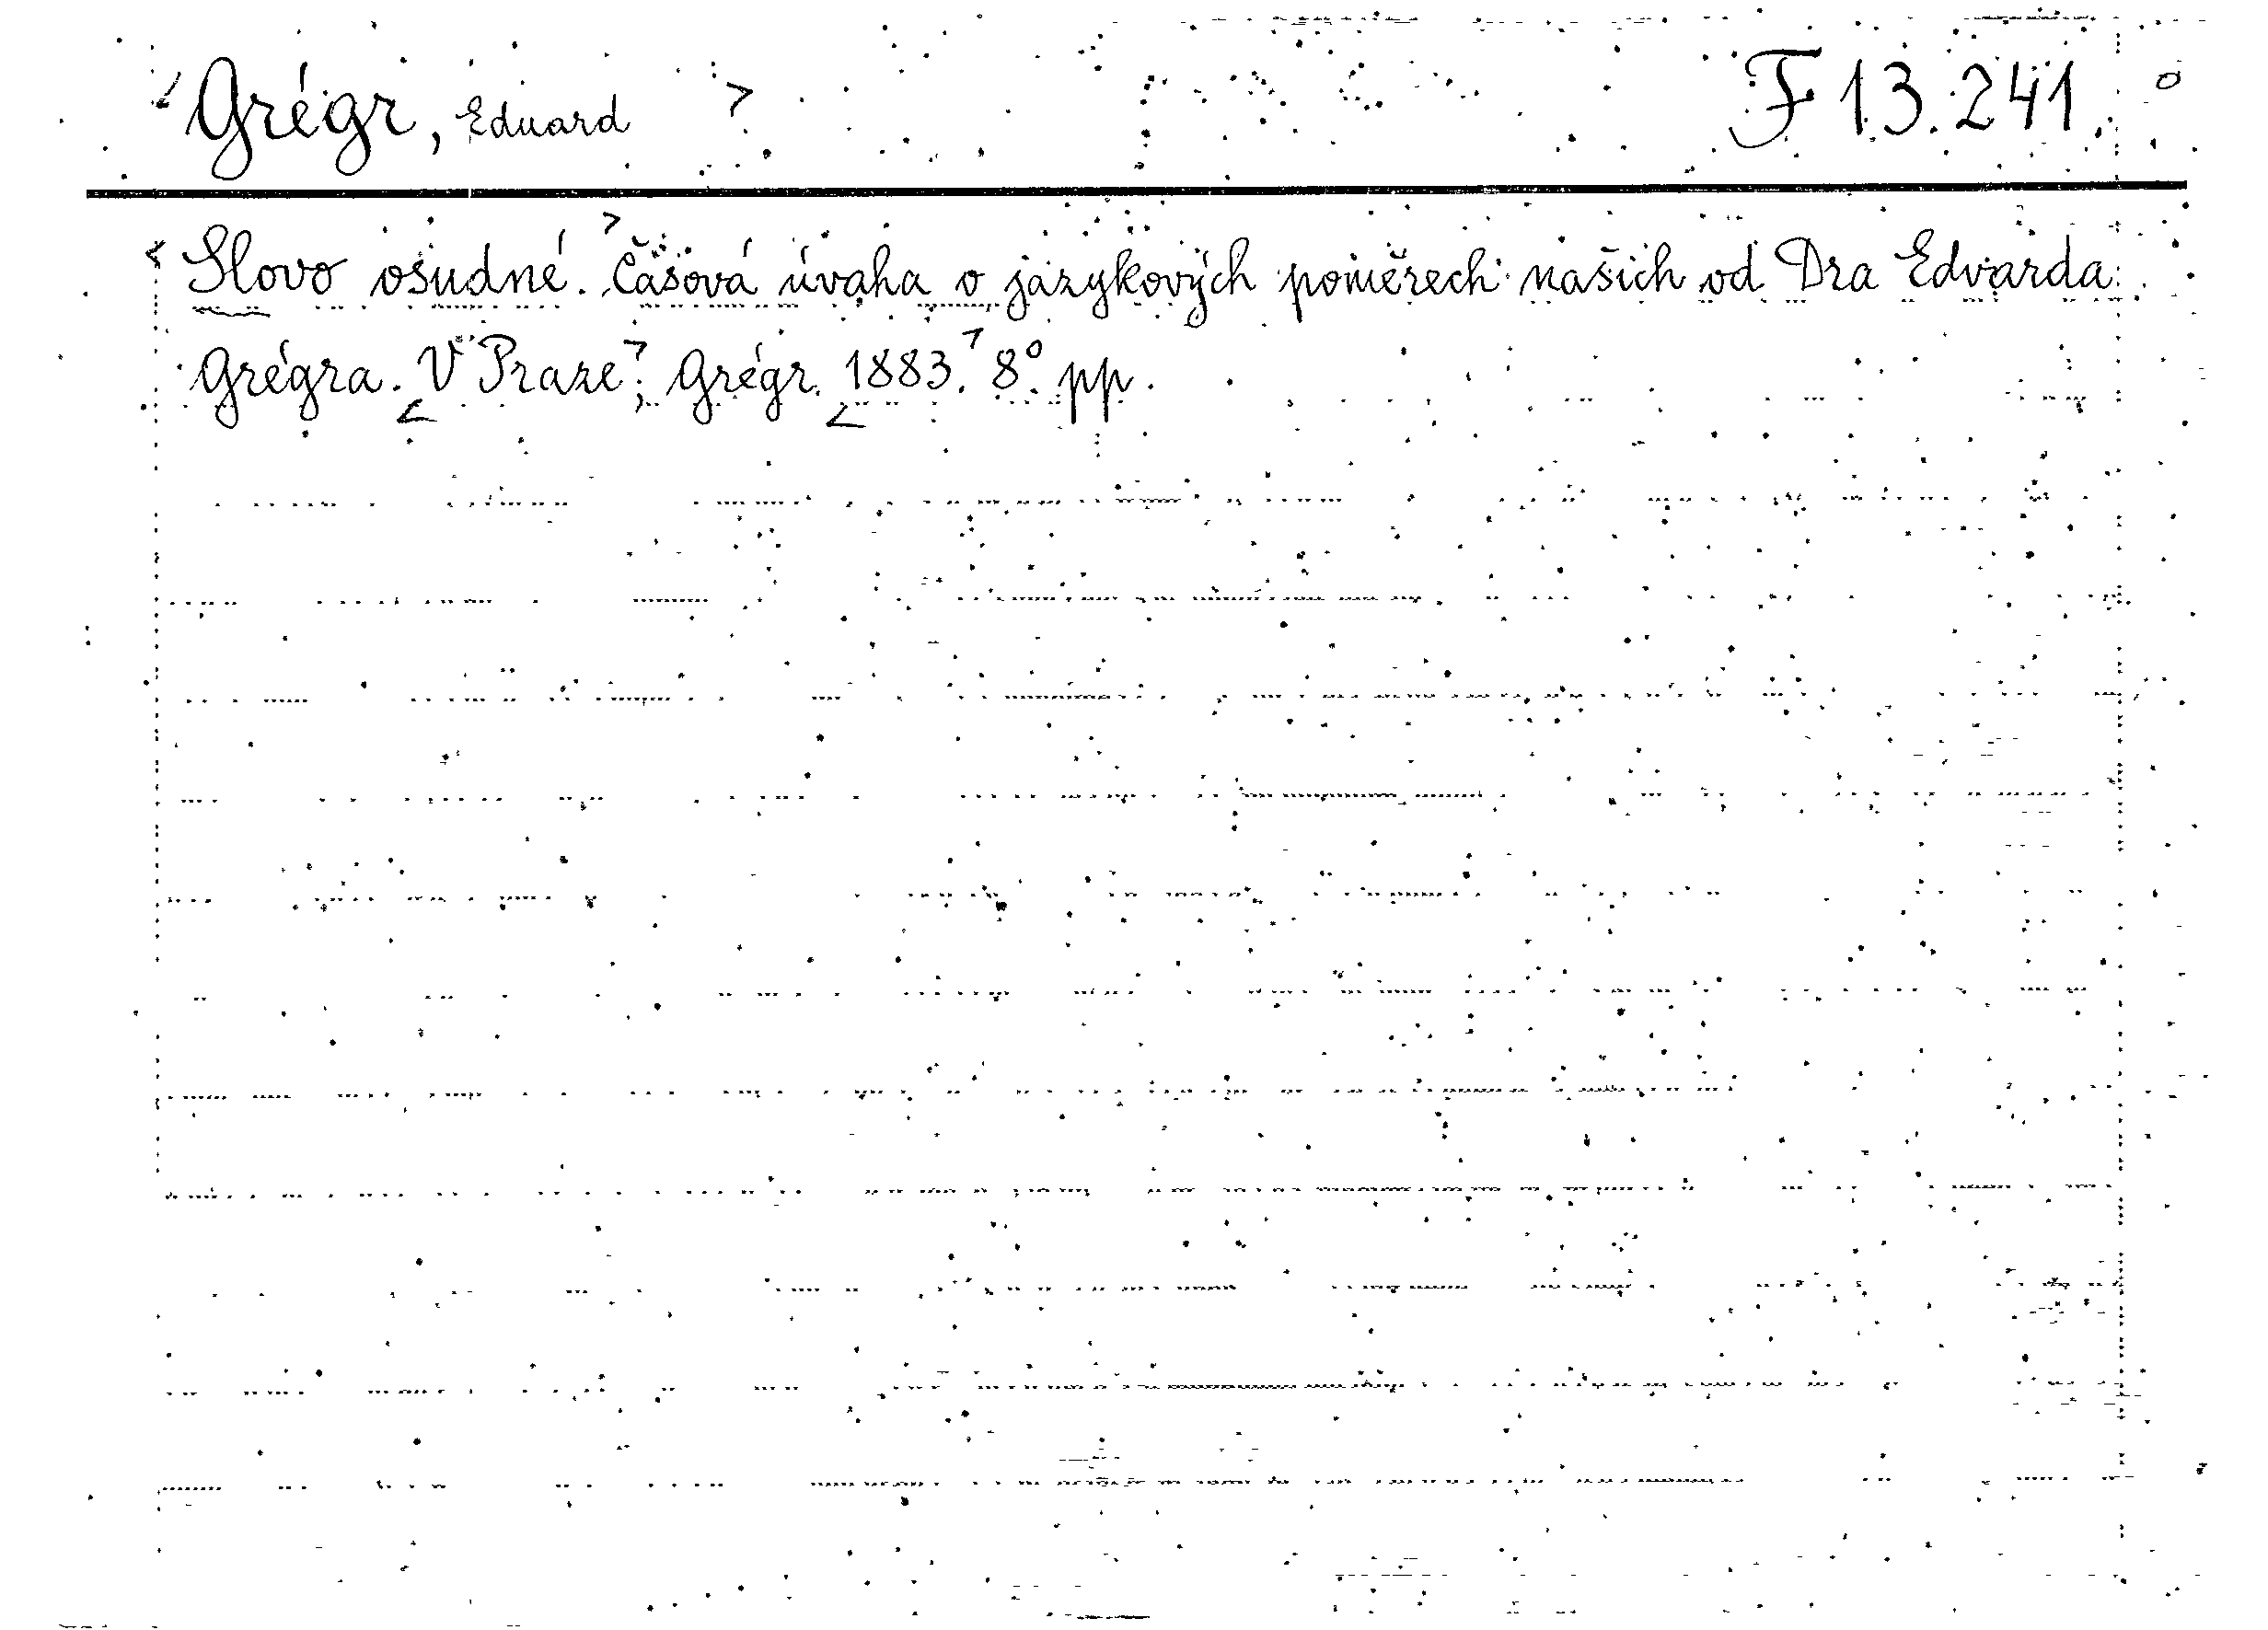 < Grégr, Eduard > F 13.241. o
< Slovo osudné. > Časová úvaha o jazykových poměrech našich od Dra Edvarda
Grégra. < V Praze >, Grégr. < 1883. > 8º. pp.